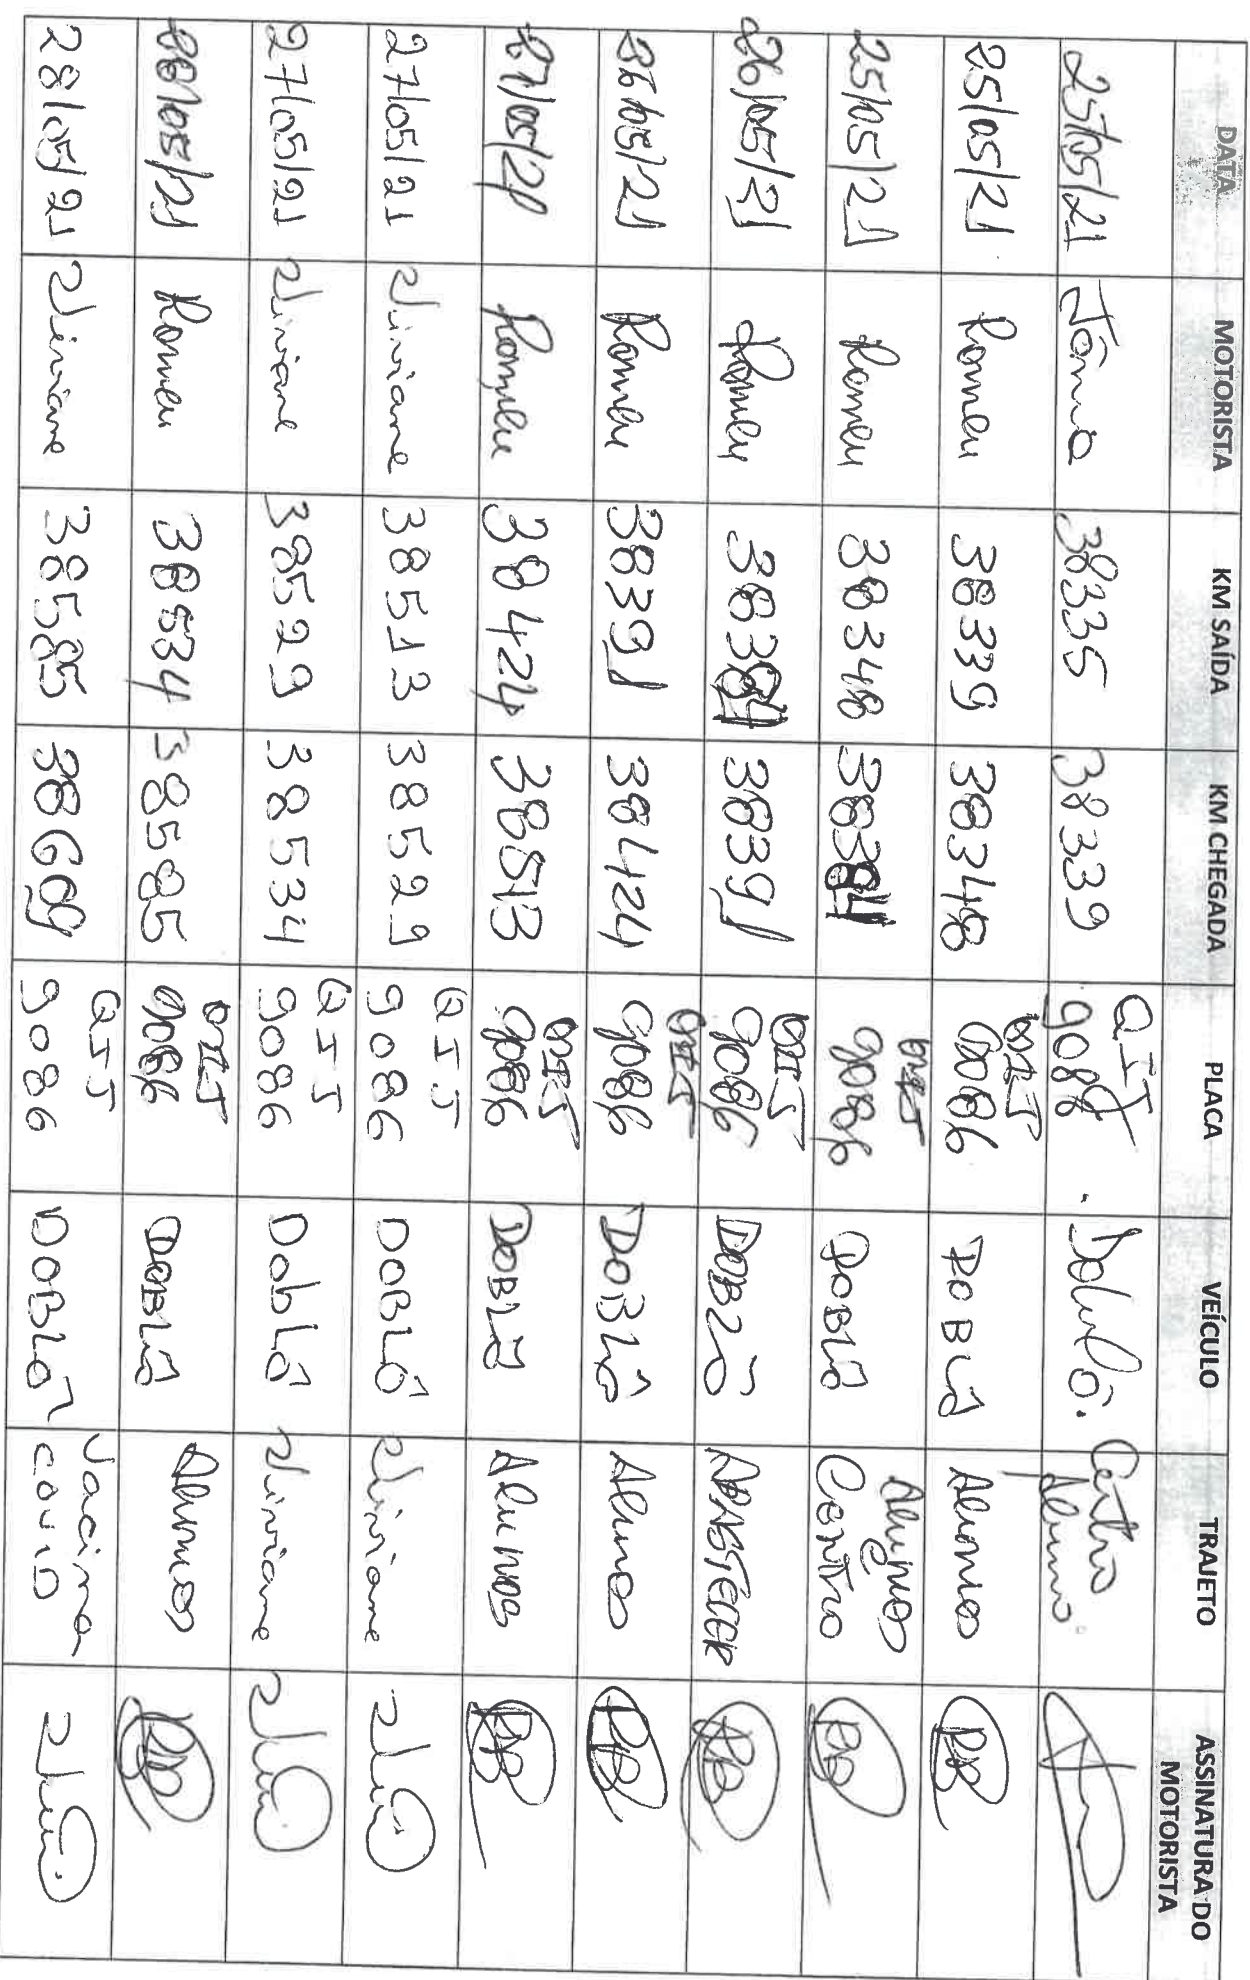 DATA MOTORISTA KM SAÍDA KM CHEGADA PLACA VEÍCULO TRAJETO ASSINATURA DO MOTORISTA
25/05/21 Tânia 38335 38339 QIJ 9086 Dobló. Centro Aluno
25/05/21 Romeu 38339 38348 QIJ 9086 DOBLÔ Alunos
25/05/21 Romeu 38348 38384 QIJ 9086 DOBLÔ Alunos Centro
26/05/21 Romeu 38384 38391 QIJ 9086 DOBLÔ ABASTECER
26/05/21 Romeu 38391 38424 QIJ 9086 DOBLÔ Alunos
27/05/21 Romeu 38424 38513 QIJ 9086 DOBLÔ Alunos
27/05/21 Viviane 38513 38529 QIJ 9086 DOBLÔ Viviane
27/05/21 Viviane 38529 38534 QIJ 9086 DobLô Viviane
28/05/21 Romeu 38534 38585 QIJ 9086 DOBLÔ Alunos
28/05/21 Viviane 38585 38609 QIJ 9086 DOBLÔ Vacina COVID